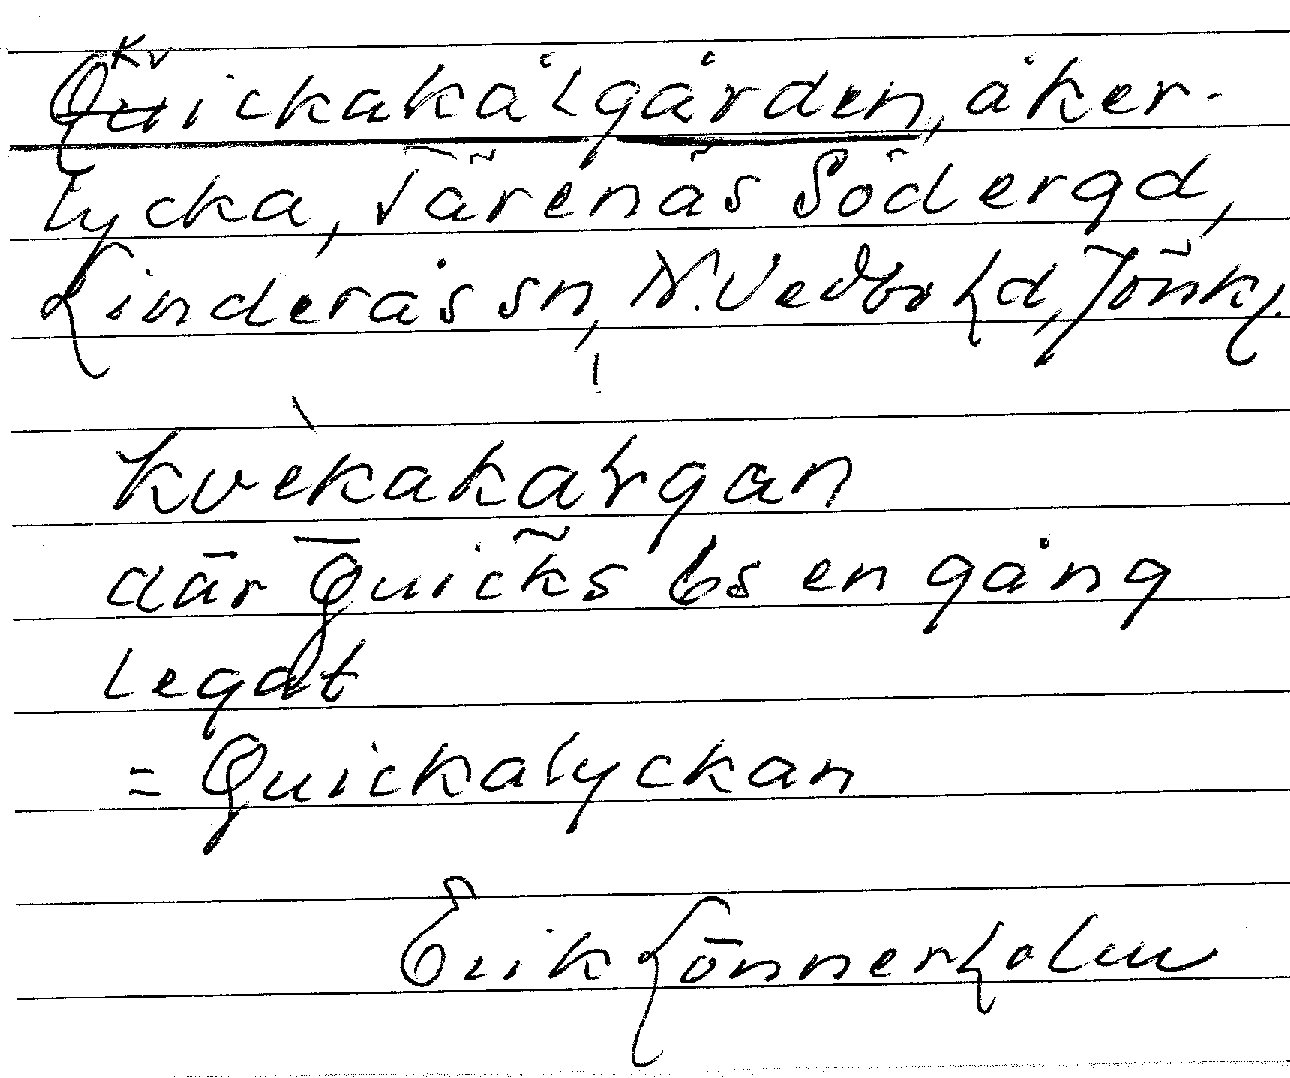 Kvickakålgården, åker-
lycka, Tärenäs Söderg​d,
Linderås sn, N. Vedbo hd, Jönk.
kvèkakaLrgan
där Quicks bs en gång
legat
= Quickalyckan
Erik Lönnerholm